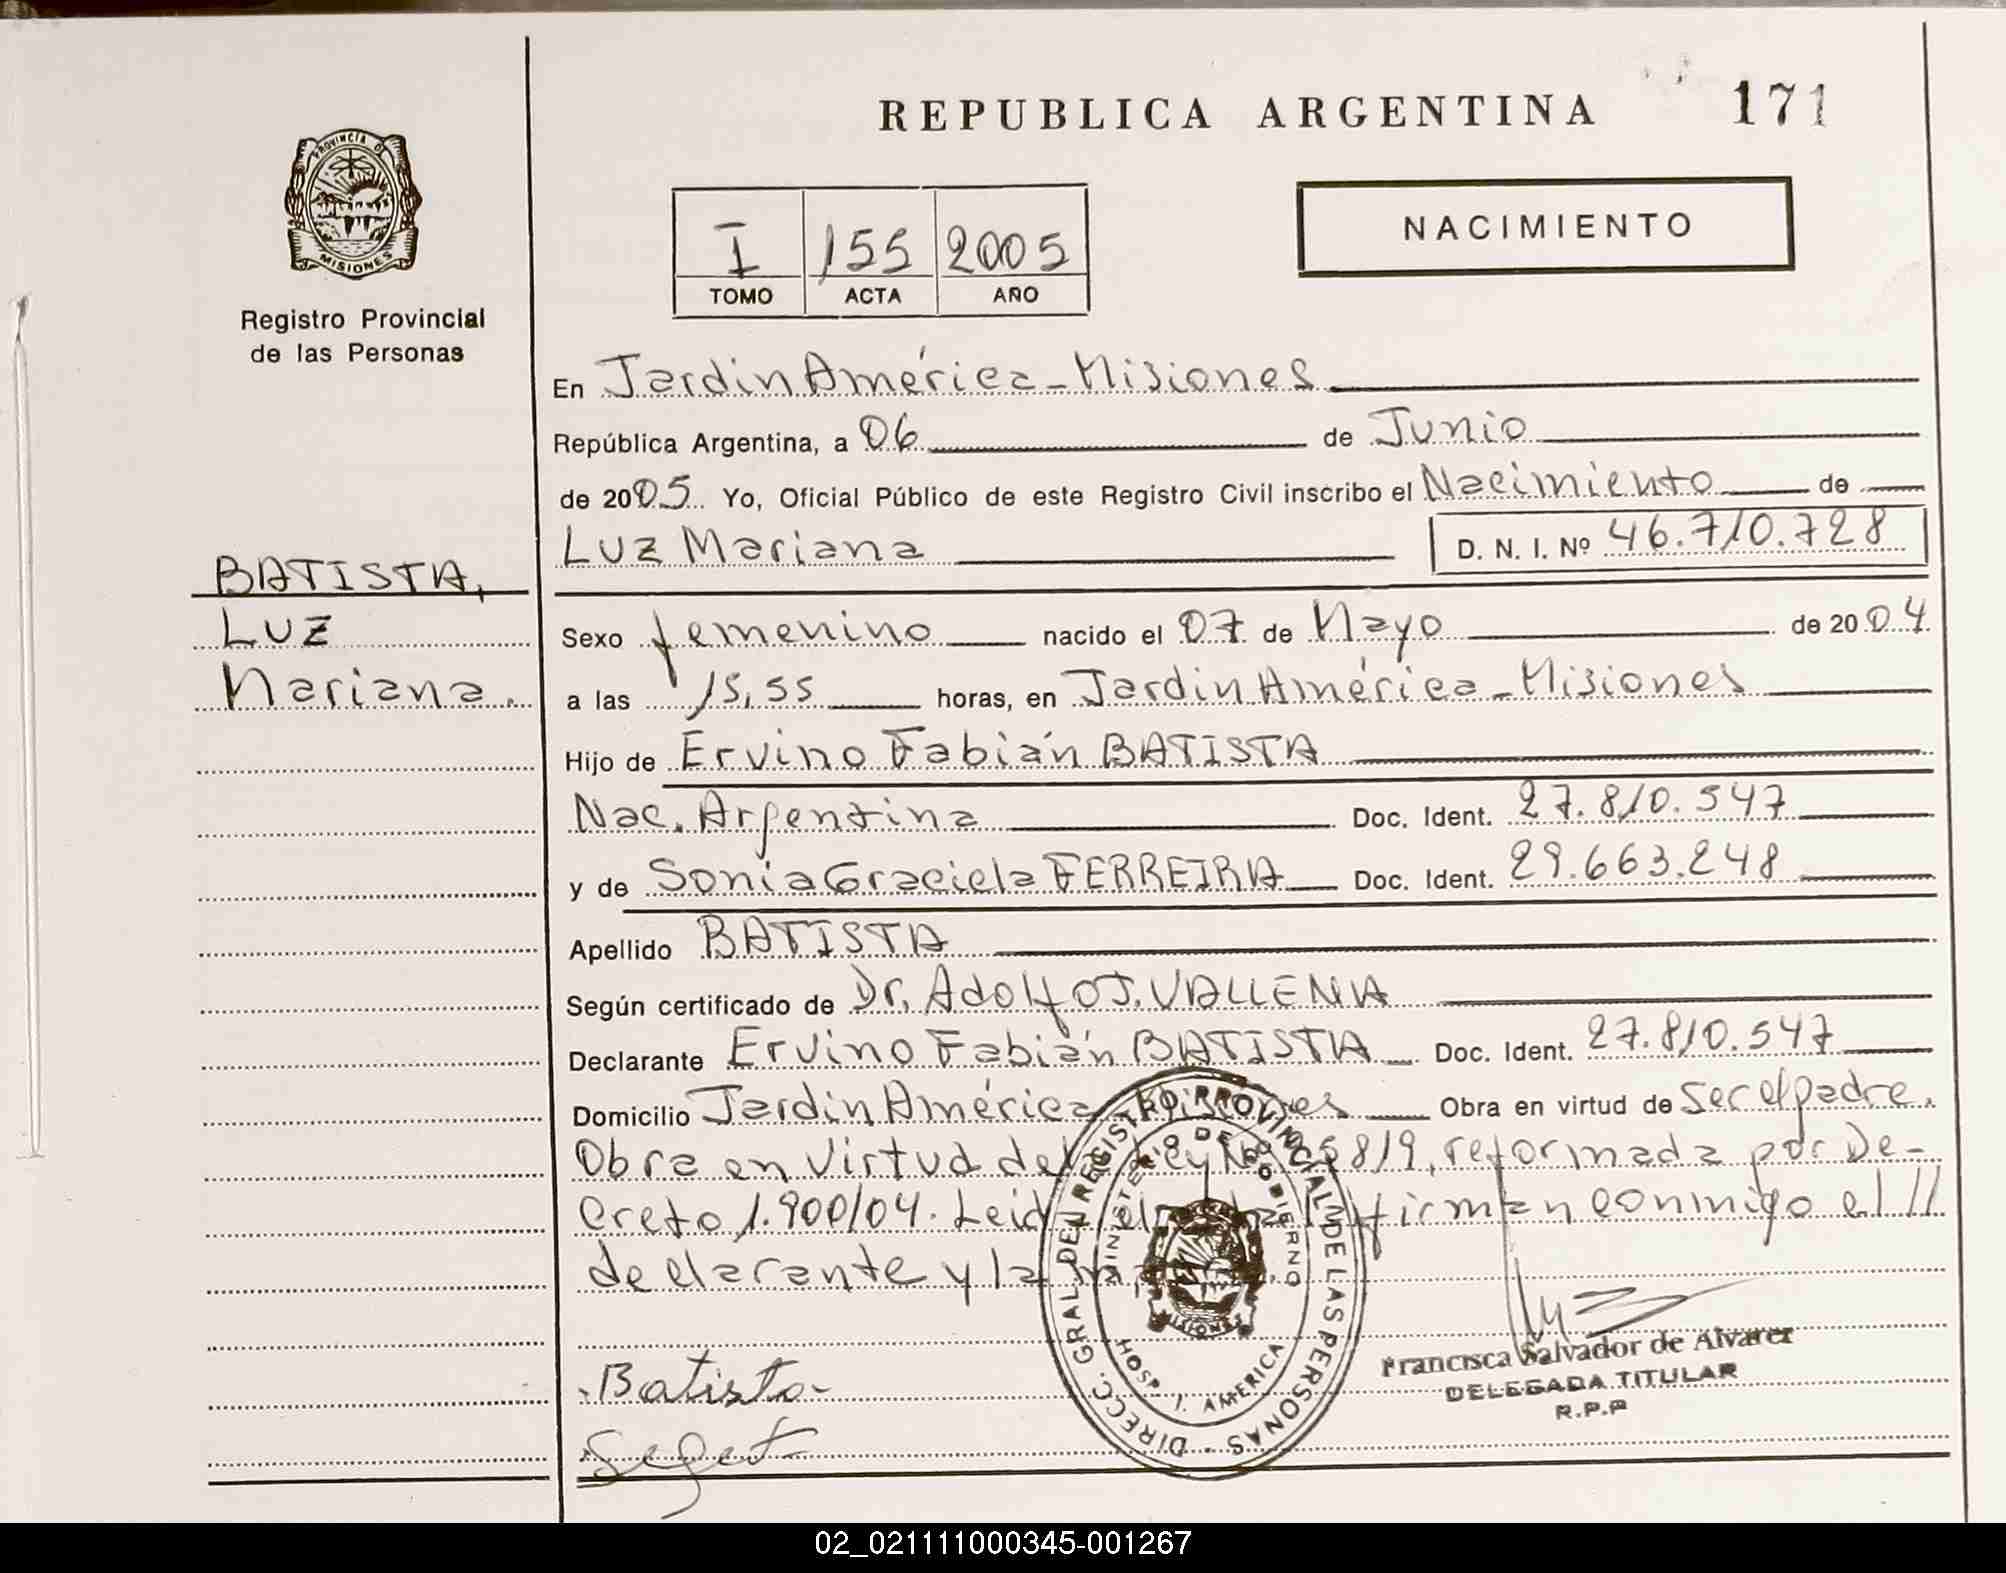 REPUBLICA ARGENTINA
171
PROVINCIA DE
MISIONES
Registro Provincial
de las Personas
I 155 2005
TOMO ACTA AÑO
NACIMIENTO
En Jardín América - Misiones
República Argentina, a 06 de Junio
de 2005 Yo, Oficial Público de este Registro Civil inscribo el Nacimiento de
Luz Mariana D. N. I. Nº 46.710.728
BATISTA,
LUZ
Mariana.
Sexo femenino nacido el 07 de Mayo de 2004
a las 15,55 horas, en Jardín América - Misiones
Hijo de Ervino Fabián BATISTA
Nac. Argentina Doc. Ident. 27.810.547
y de Sonia Graciela FERREIRA Doc. Ident. 29.663.248
Apellido BATISTA
Según certificado de Dr. Adolfo J. VALLENIA
Declarante Ervino Fabián BATISTA Doc. Ident. 27.810.547
Domicilio Jardín América - Misiones Obra en virtud de ser el padre.
Obra en virtud de Ley Nº 25819, reformada por De-
creto 1.900/04. Leida el firman conmigo el //
declarante y la
Batista
DIRECC. GRAL DEL REGISTRO PROVINCIAL DE LAS PERSONAS
MINISTERIO DE GOBIERNO
MISIONES
HOSP. J. AMERICA
Francisca Salvador de Alvarez
DELEGADA TITULAR
R.P.P
02_021111000345-001267